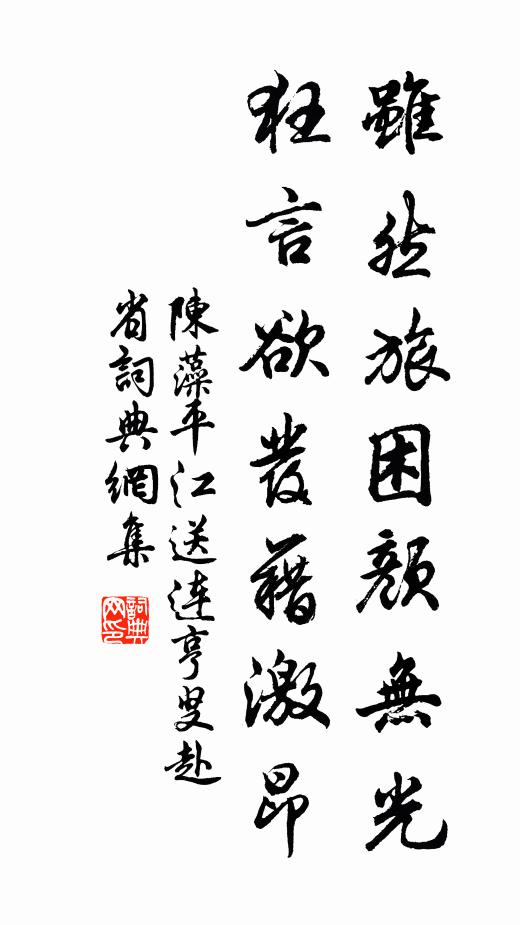 雖然旅困顏無光
狂言欲發藉激昂
陳藻平江送連亨叟赴
省詞典網集
詞典
网印